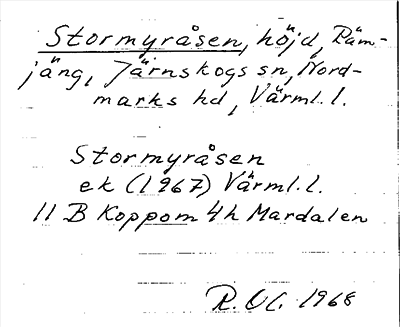 Stormyråsen, höjd, Räm-
jäng, Järnskogs sn, Nord-
marks hd, Värml. l.
Stormyråsen
ek (1967) Värml. l.
11 B Koppom 4h Mardalen
R. Ol. 1968